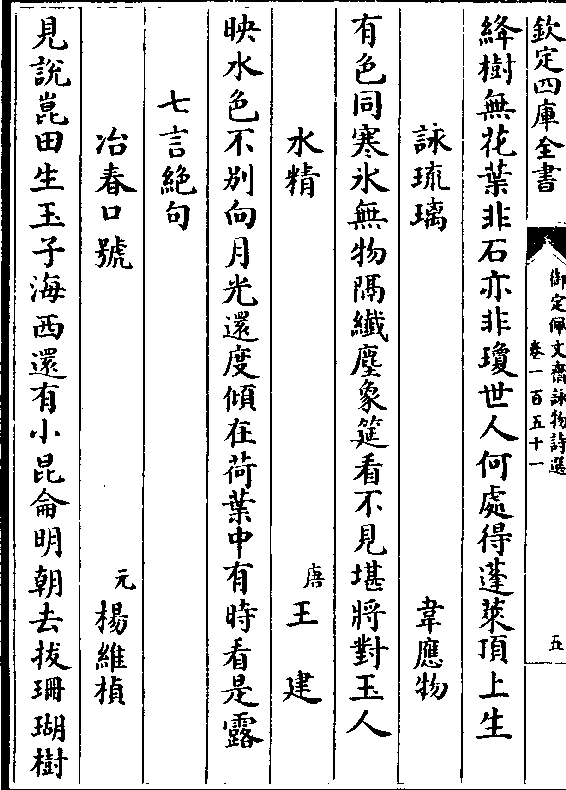 欽定四庫全書
御定佩文齋詠物詩選
卷一百五十一
五
絳樹無花葉非石亦非瓊世人何處得蓬萊頂上生
詠琉璃 韋應物
有色同寒氷無物隔纖塵象筵看不見堪將對玉人
水精 唐王建
映水色不别向月光還度傾在荷葉中有時看是露
七言絶句
冶春口號 元楊維楨
見說崑田生玉子海西還有小昆侖明朝去拔珊瑚樹